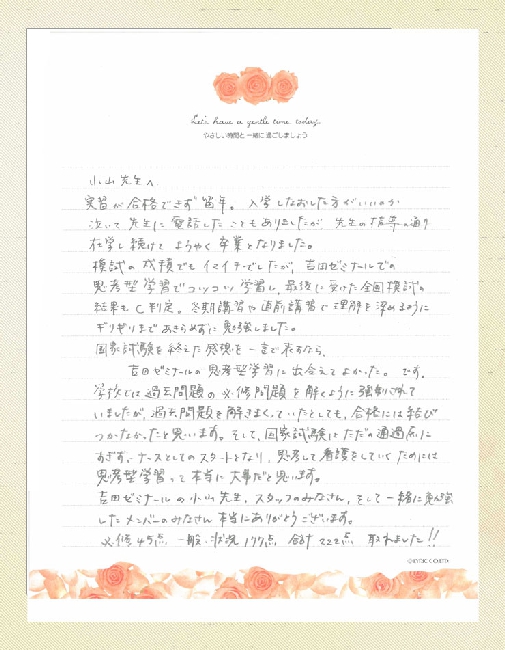 Let's have a gentle time today.
やさしい時間と一緒に過ごしましょう
小山先生へ
実習が合格できず留年。入学しなおした方がいいのか
泣いて先生に電話したこともありましたが、先生の指導の通り
在学し続けてようやく卒業となりました。
模試の成績でもイマイチでしたが、吉田ゼミナールでの
思考型学習でコツコツ学習し、最後に受けた全国模試の
結果もC判定。冬期講習や直前講習で理解を深めるように
ギリギリまであきらめずに勉強しました。
国家試験を終えた感想を一言で表すなら、
吉田ゼミナールの思考型学習に出会えてよかった。です。
学校では過去問題の必修問題を解くように強制されて
いましたが、過去問題を解きまくっていたとしても、合格には結び
つかなかったと思います。そして、国家試験はただの通過点に
すぎず、ナースとしてのスタートとなり、思考して看護をしていくためには
思考型学習って本当に大事だと思います。
吉田ゼミナールの小山先生、スタッフのみなさん、そして一緒に勉強
したメンバーのみなさん本当にありがとうございます。
必修45点 一般・状況177点 合計222点 取れました!!